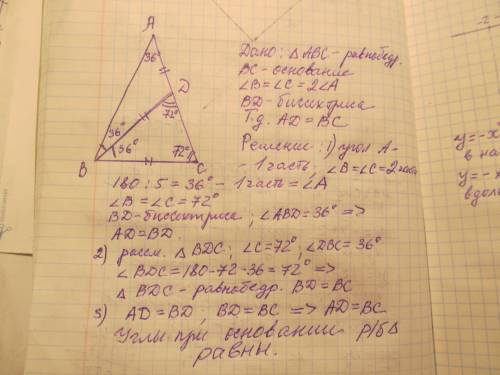 A
36°
D
72°
36°
36°
72°
B
C
Дано: △ABC - равнобедр.
BC - основание
∠B=∠C=2∠A
BD - биссиктриса
Т.д. AD=BC
Решение: 1) угол A -
- 1 часть, ∠B=∠C=2 части
180 : 5 = 36° - 1 част = ∠A
∠B = ∠C = 72°
BD - биссектриса, ∠ABD = 36° =>
AD = BD
2) рассм. △BDC; ∠C=72°, ∠DBC = 36°
∠BDC = 180-72-36 = 72° =>
△BDC - равнобедр. BD = BC
3) AD = BD, BD = BC => AD = BC
Углы при основании р/б△
равны.
-2
y=-x
в на
y=-x
вдол